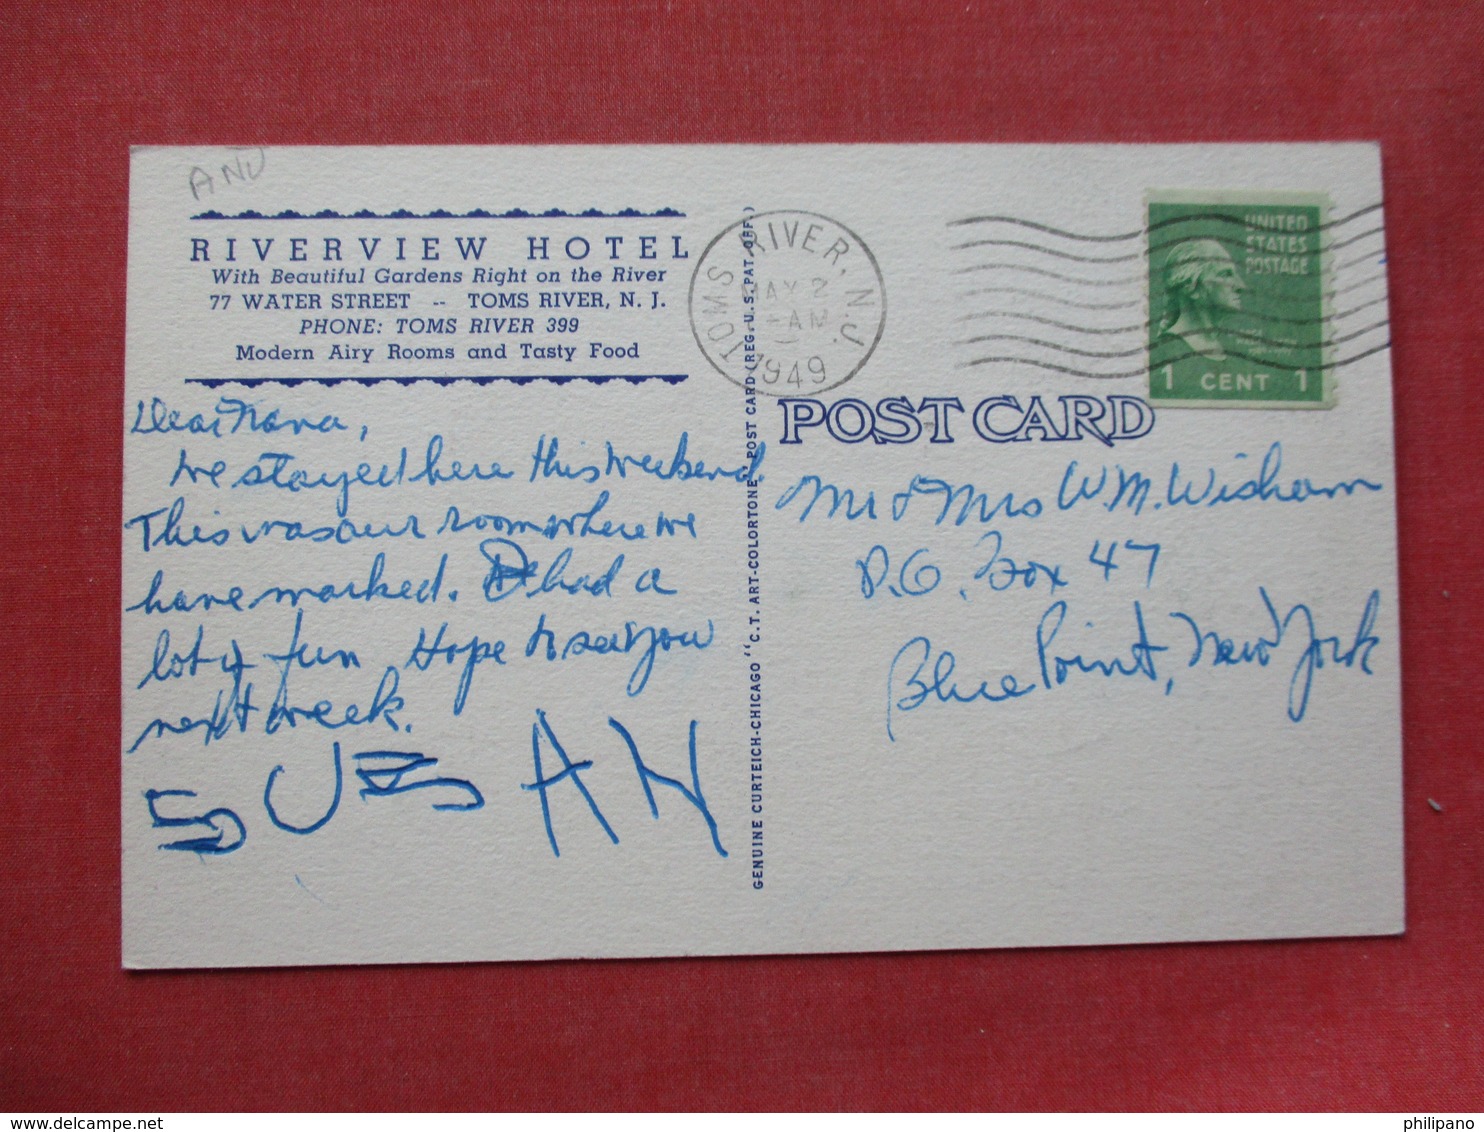 ANJ
RIVERVIEW HOTEL
With Beautiful Gardens Right on the River
77 WATER STREET -- TOMS RIVER, N. J.
PHONE: TOMS RIVER 399
Modern Airy Rooms and Tasty Food
Dear Nana,
We stayed here this weekend.
This was our room where we
have marked. had a
lot of fun. Hope to see you
next week.
SUSAN
GENUINE CURTEICH-CHICAGO "C.T. ART-COLORTONE" POST CARD (REG. U.S. PAT. OFF.)
TOMS RIVER, N.J.
MAY 2
AM
1949
UNITED
STATES
POSTAGE
1 CENT 1
POST CARD
Mr & Mrs Wm. Wisham
P.O. Box 47
Blue Point, New York
philipano